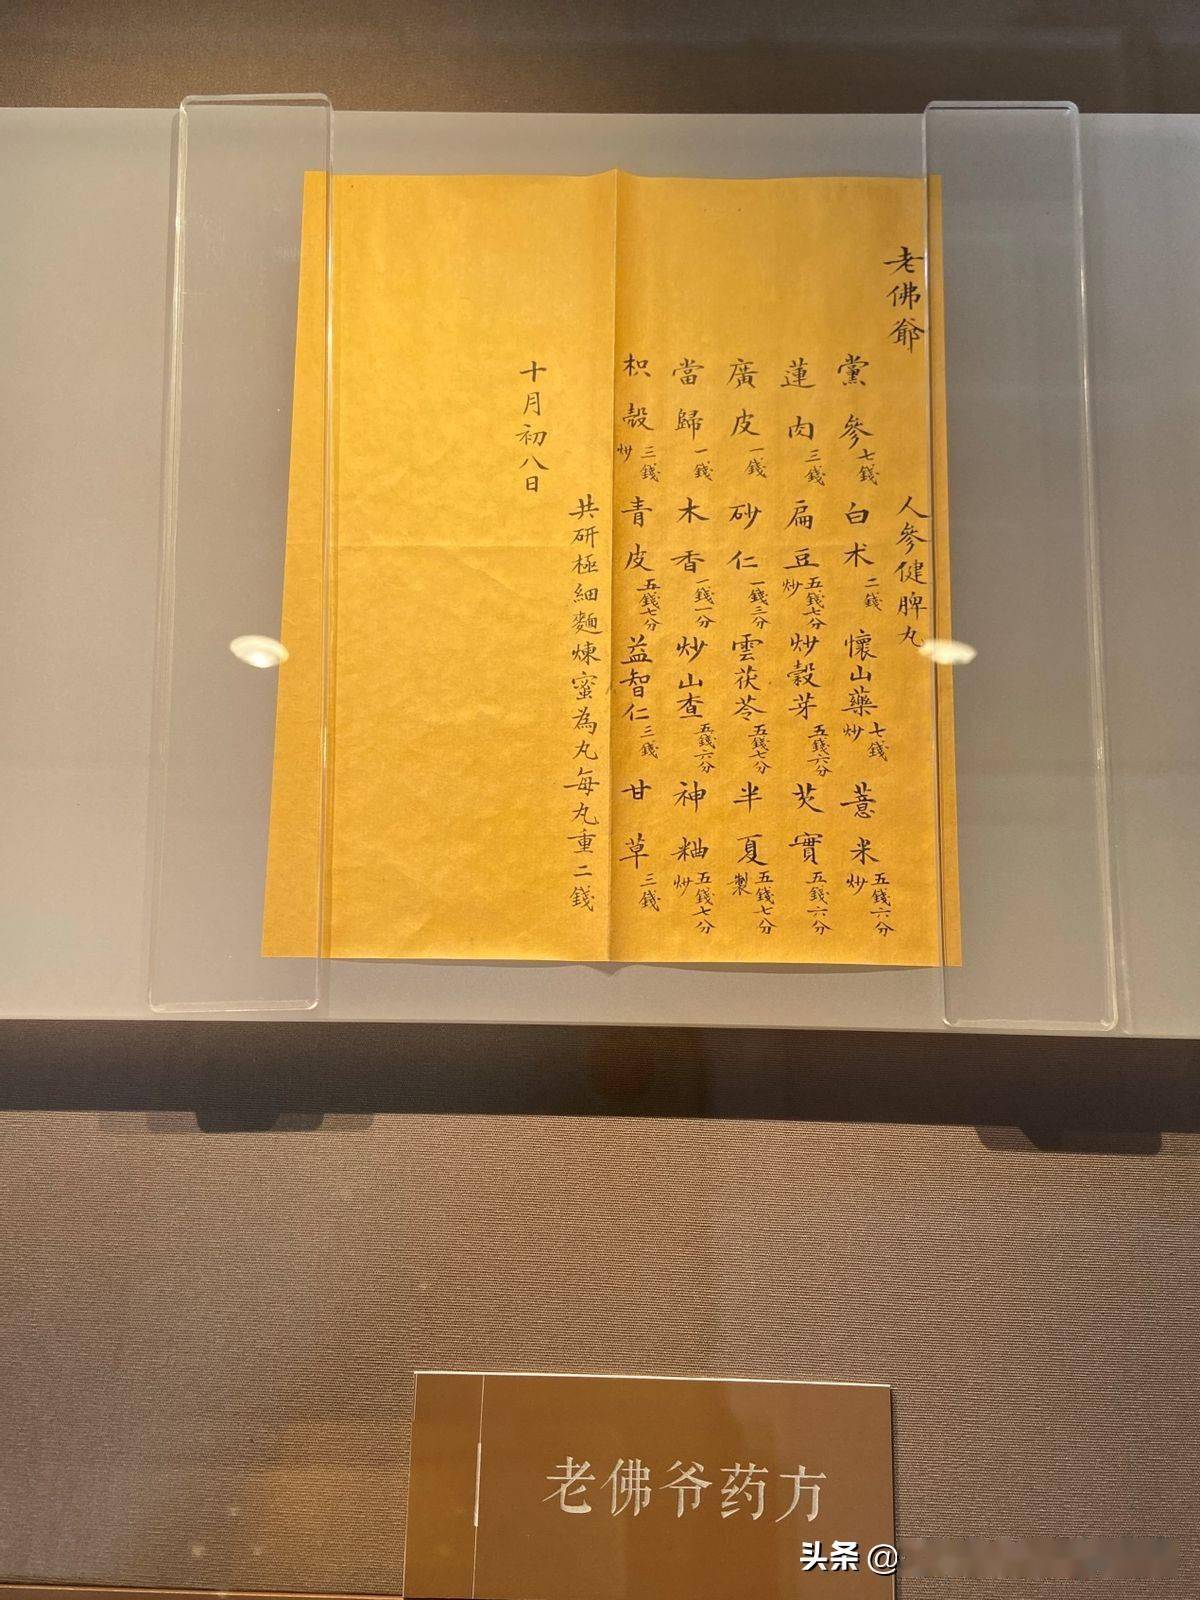 老佛爺
人參健脾丸
黨參七錢 白术二錢 懷山藥炒七錢 薏米炒五錢六分
蓮肉三錢 扁豆炒五錢七分 炒穀芽五錢六分 芡實五錢六分
廣皮一錢 砂仁一錢三分 雲茯苓五錢七分 半夏製五錢七分
當歸一錢 木香一錢一分 炒山查五錢六分 神粬炒五錢七分
枳殼炒三錢 青皮五錢七分 益智仁三錢 甘草三錢
共研極細麵煉蜜為丸每丸重二錢
十月初八日
老佛爷药方
头条@